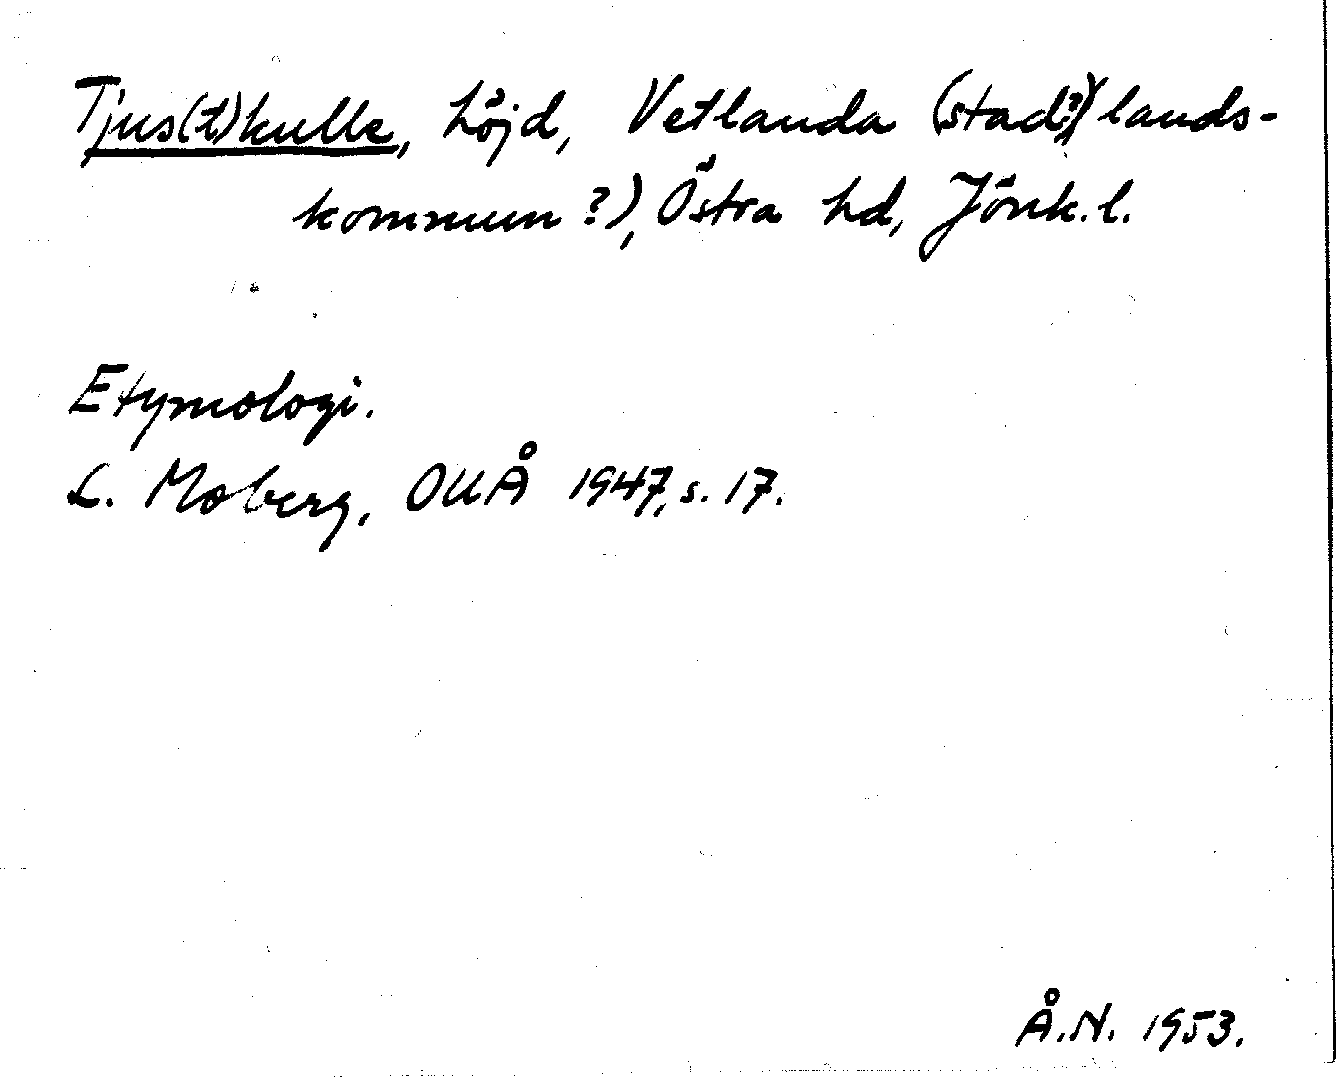 Tjus(t)kulle, höjd, Vetlanda (stad?)(lands-
kommun?), Östra hd, Jönk. l.
Etymologi.
L. Moberg, OUÅ 1947, s. 17.
Å.N. 1953.